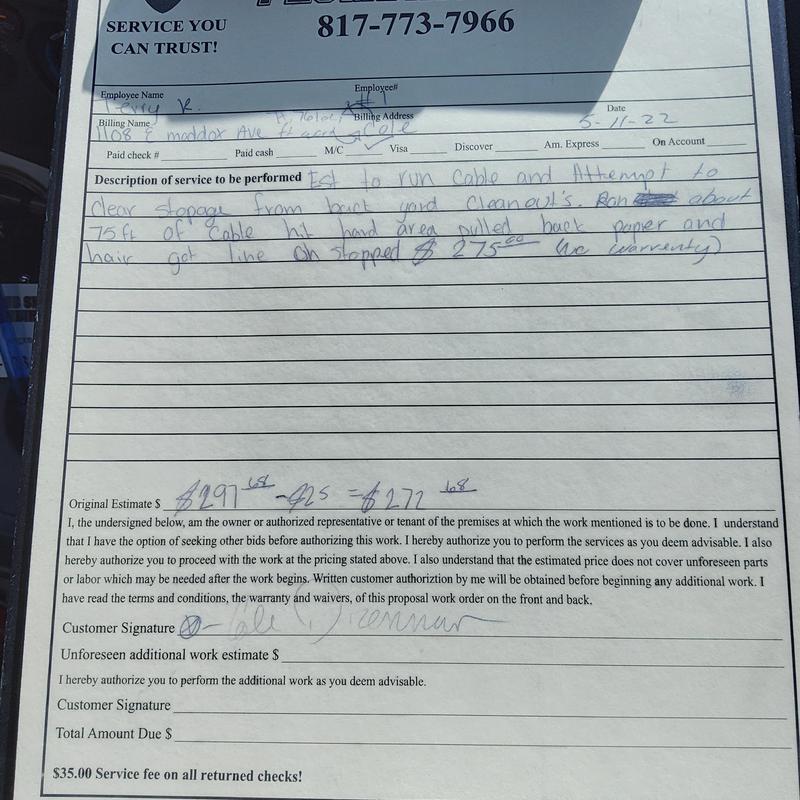 SERVICE YOU
CAN TRUST!
817-773-7966
Employee Name
Employee#
Terry R. #1
Billing Name
Billing Address
Date
1108 E maddox Ave ft Cole 5-11-22
Paid check # Paid cash M/C ✓ Visa Discover Am. Express On Account
Description of service to be performed Est to run Cable and Attempt to
clear stopage from back yard Cleanout's. Ran about
75 ft of Cable hit hard area pulled back paper and
hair got line Un stopped $ 275.00 (No warrenty)
Original Estimate $ $297.68 - $25 = $272.68
I, the undersigned below, am the owner or authorized representative or tenant of the premises at which the work mentioned is to be done. I understand
that I have the option of seeking other bids before authorizing this work. I hereby authorize you to perform the services as you deem advisable. I also
hereby authorize you to proceed with the work at the pricing stated above. I also understand that the estimated price does not cover unforeseen parts
or labor which may be needed after the work begins. Written customer authoriztion by me will be obtained before beginning any additional work. I
have read the terms and conditions, the warranty and waivers, of this proposal work order on the front and back.
Customer Signature
Unforeseen additional work estimate $
I hereby authorize you to perform the additional work as you deem advisable.
Customer Signature
Total Amount Due $
$35.00 Service fee on all returned checks!